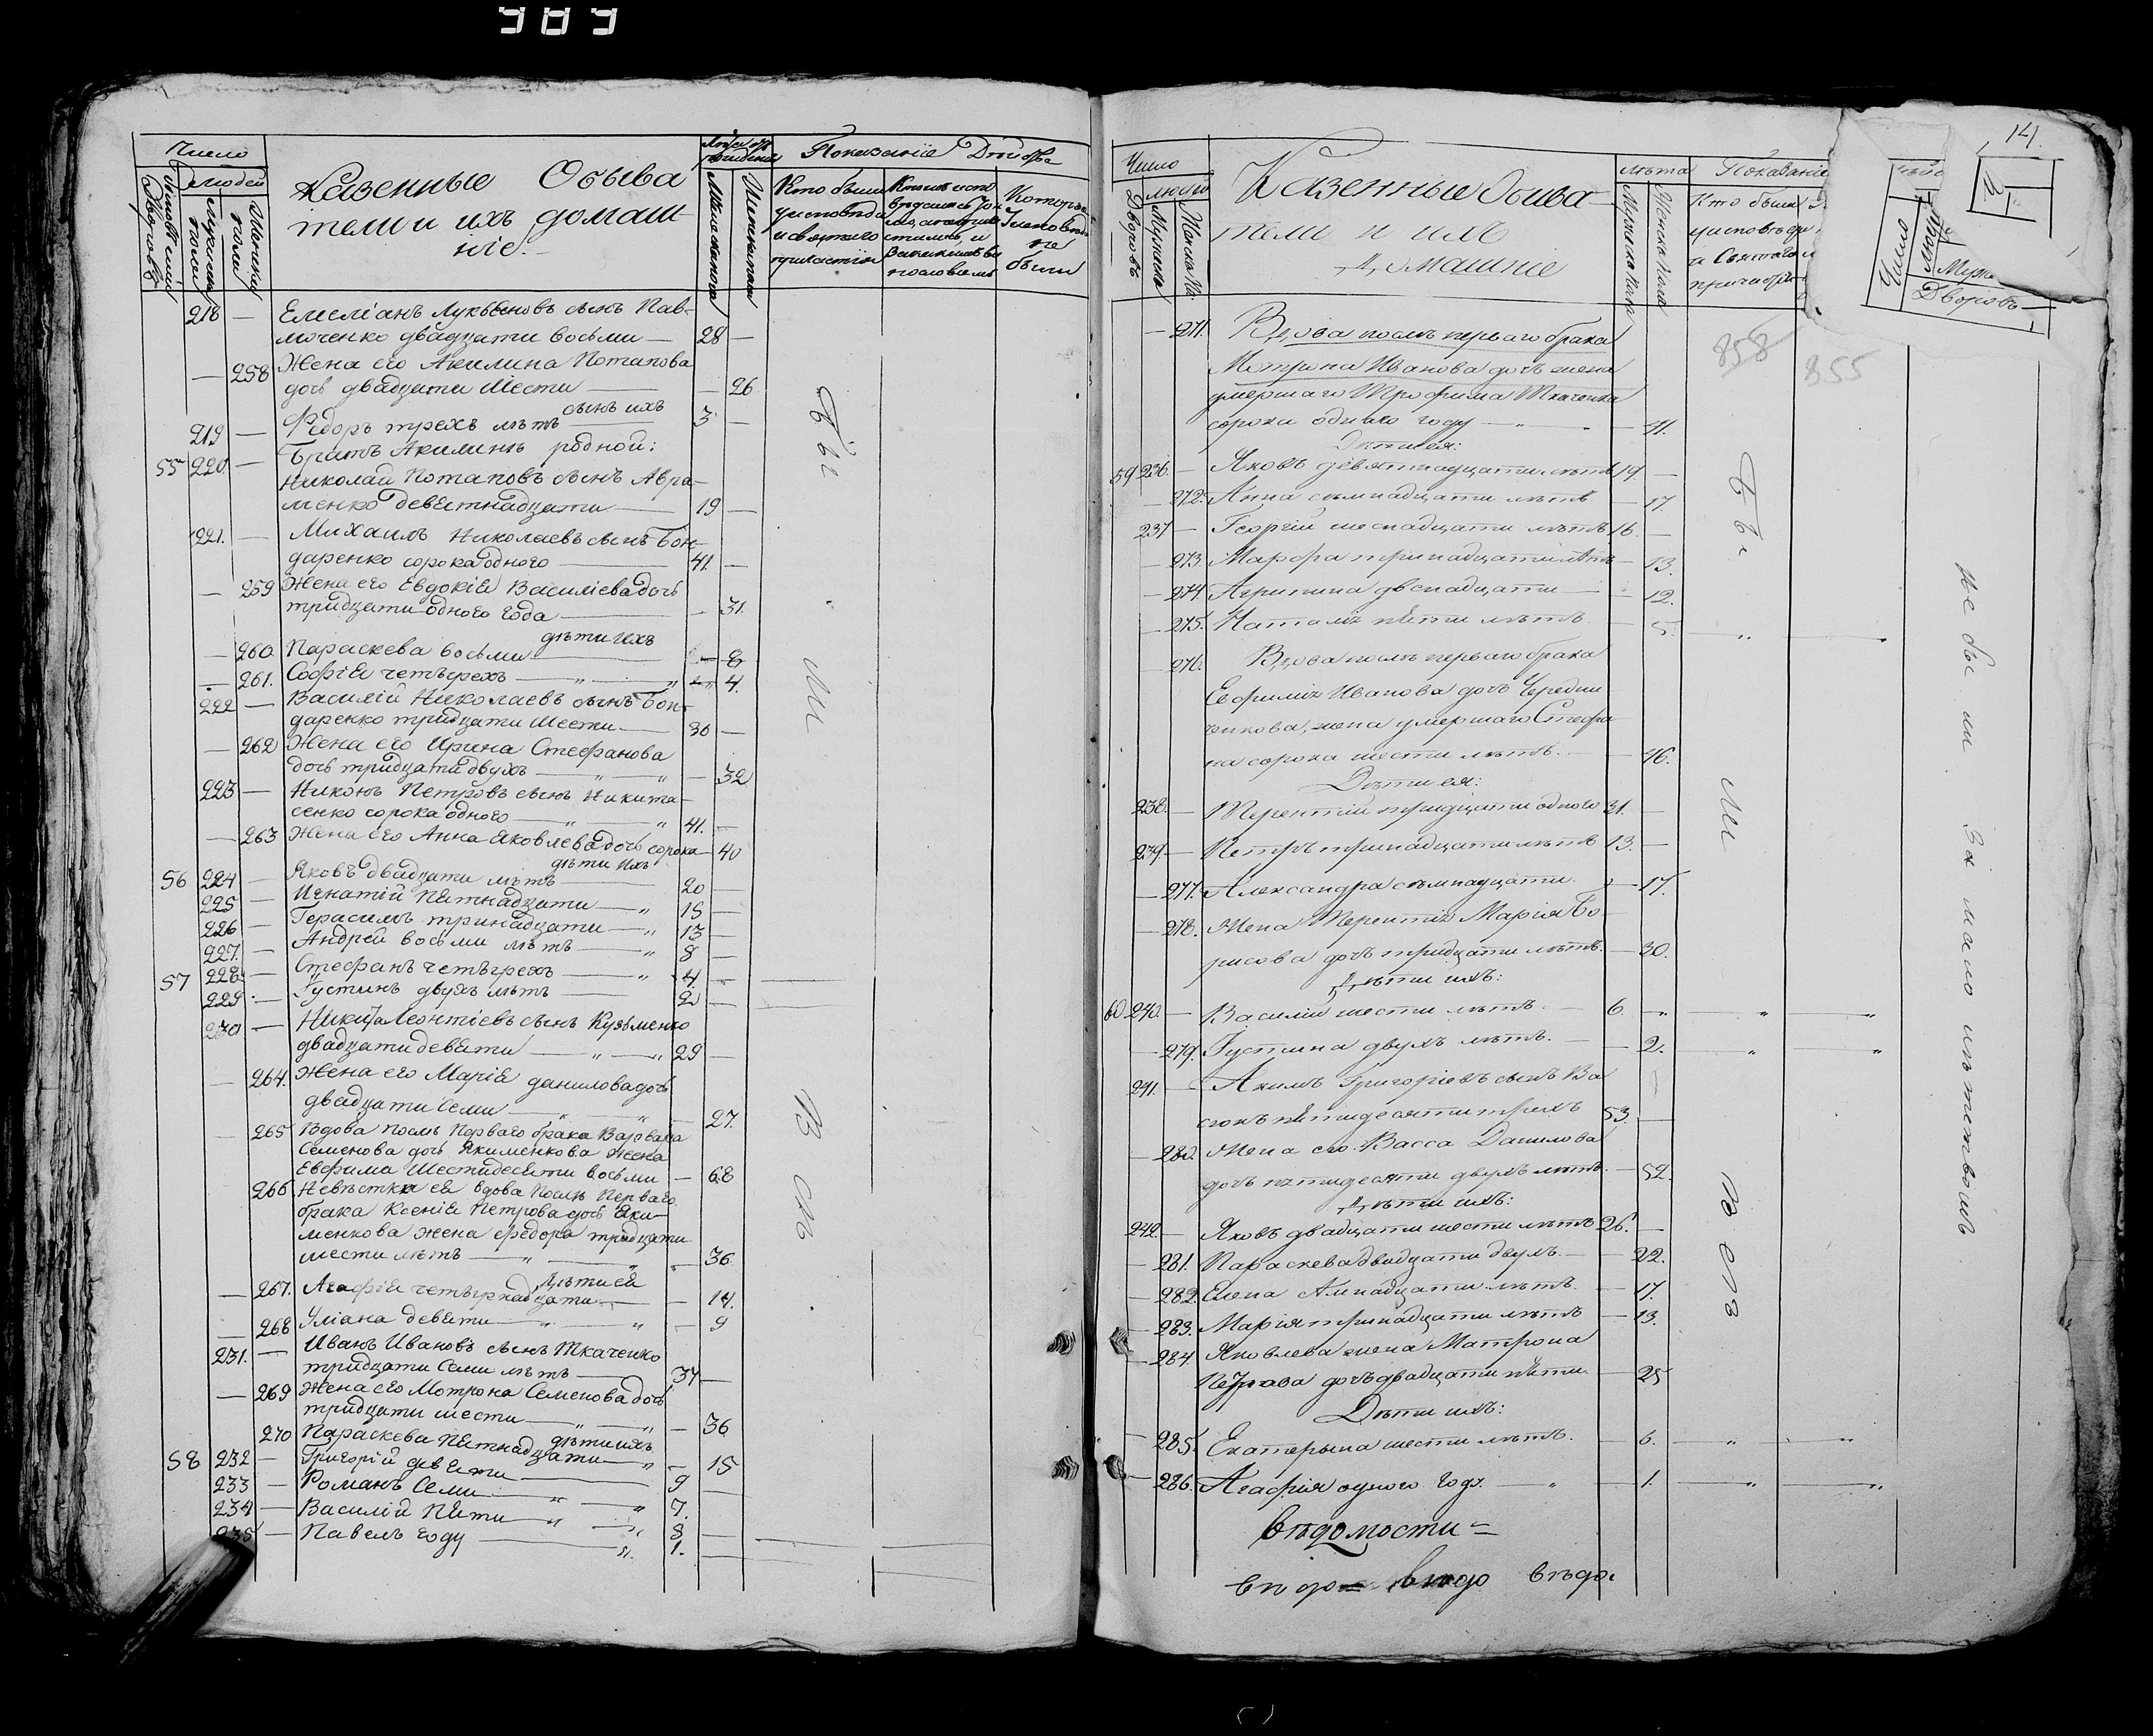 383
Число
Людей
Казенные Обыва
тели и ихъ домаш
ніе.
Показаніе Действа
Кто были
Которые
не
были
218 — Емеліанъ Лукьяновъ сынъ Пав-
люченко двадцати восьми — 28 —
— 258 Жена его Акилина Потапова
дочь двадцати шести — — 26
сынъ ихъ
219 — Фѣдоръ трехъ лѣтъ — 3 —
Братъ Акилинѣ родной:
55 220 — Николай Потаповъ сынъ Авра-
менко девятнадцати — 19 —
221. — Михаилъ Николаевъ сынъ Бон-
даренко сорока одного — 41. —
— 259 Жена его Евдокія Василіева дочь
тридцати одного года — — 31.
дѣти ихъ
— 260 Параскева восьми — — 8
— 261. Софія четырехъ — „ — „ — 4.
222 — Василій Николаевъ сынъ Бон-
даренко тридцати шести — 36 —
— 262 Жена его Ирина Стефанова
дочь тридцати двухъ — „ — „ — 32
223 — Никонъ Петровъ сынъ Никита-
сенко сорока одного — „ — „ 41. —
— 263 Жена его Анна Яковлева дочь сорока — 40
дѣти ихъ
56 224 — Яковъ двадцати лѣтъ — 20 —
225 — Игнатій пятнадцати — „ 15 —
226 — Герасимъ тринадцати — „ 13 —
227. — Андрей восьми лѣтъ — „ 8 —
57 228 — Стефанъ четырехъ — „ 4 —
229 — Іустинъ двухъ лѣтъ — 2 —
230 — Никита Леонтіевъ сынъ Кузьменко
двадцати девяти — „ — „ 29 —
— 264. Жена его Марія Данилова дочь
двадцати семи — „ — „ — 27.
— 265 Вдова послѣ перваго брака Варвара
Семенова дочь Якименкова жена
Евфима шестидесяти восьми — 68
266 Невѣстка ея вдова послѣ перваго
брака Ксенія Петрова дочь Яки-
менкова жена Федора тридцати
шести лѣтъ — „ — „ — 36
Дѣти ея
— 267. Агафія четырнадцати — — 14.
— 268 Уліана девяти — „ — „ — 9
231. — Иванъ Ивановъ сынъ Ткаченко
тридцати семи лѣтъ — 37 —
— 269 Жена его Мотрона Семенова дочь
тридцати шести — „ — „ — 36
дѣти ихъ
270 Параскева пятнадцати — „ — 15
58 232 — Григорій девяти — 9
233 — Романъ семи — „ — „ 7. —
234 — Василій пяти — „ — „ 8. —
235 — Павелъ году — „ 1. —
Бы
ли
В
сѣ
14.
Число
Людей
Дворовъ
Казенные Обыва
тели и ихъ
Домашніе
лѣта
Показаніе
Кто были
Дворовъ
858
855
— 271. Вдова послѣ перваго брака
Мотрона Иванова дочь жена
умершаго Трофима Ткаченка
сорока одного году — „ — — 41.
Дѣти ея:
59 236. — Яковъ девятнадцати лѣтъ 19. —
— 272. Анна семнадцати лѣтъ — 17.
237 — Георгій шеснадцати лѣтъ 16. —
— 273. Марфа тринадцати лѣтъ — 13.
— 274. Агрипина двенадцати — — 12.
— 275. Наталія пяти лѣтъ — 5. „ „
— 276. Вдова послѣ перваго брака
Евфимія Иванова дочь Чередни
чикова, жена умершаго Стефа
на сорока шести лѣтъ. — 46.
Дѣти ея:
238. — Терентій тридцати одного 31. —
239. — Петръ тринадцати лѣтъ 13. —
— 277. Александра семнадцати. — 17.
— 278. Жена Терентія Марія Бо
рисова дочь тридцати лѣтъ. — 30.
Дѣти ихъ:
60. 240. — Василій шести лѣтъ. — 6. „ „ „
— 279. Іустина двухъ лѣтъ. — 2. „ „
241. — Акимъ Григоріевъ сынъ Ва
пятидесяти трехъ 53. —
— 280. Жена его Васса Данилова
дочь пятидесяти двухъ лѣтъ. — 52.
Дѣти ихъ:
242. — Яковъ двадцати шести лѣтъ 26. —
— 281. Параскева двадцати двухъ. — 22.
— 282. Елена семнадцати лѣтъ. — 17.
— 283. Марія тринадцати лѣтъ — 13.
— 284 Яковлева жена Матрона
Петрова дочь двадцати пяти. — 25
Дѣти ихъ:
— 285. Екатерына шести лѣтъ. — 6. „ „
— 286. Агафія одного году. — „ — 1. „ „
Бы
ли
В
сѣ
не бы ли За мало лѣтствомъ
вѣдомости
вѣдо вѣдо вѣдо.